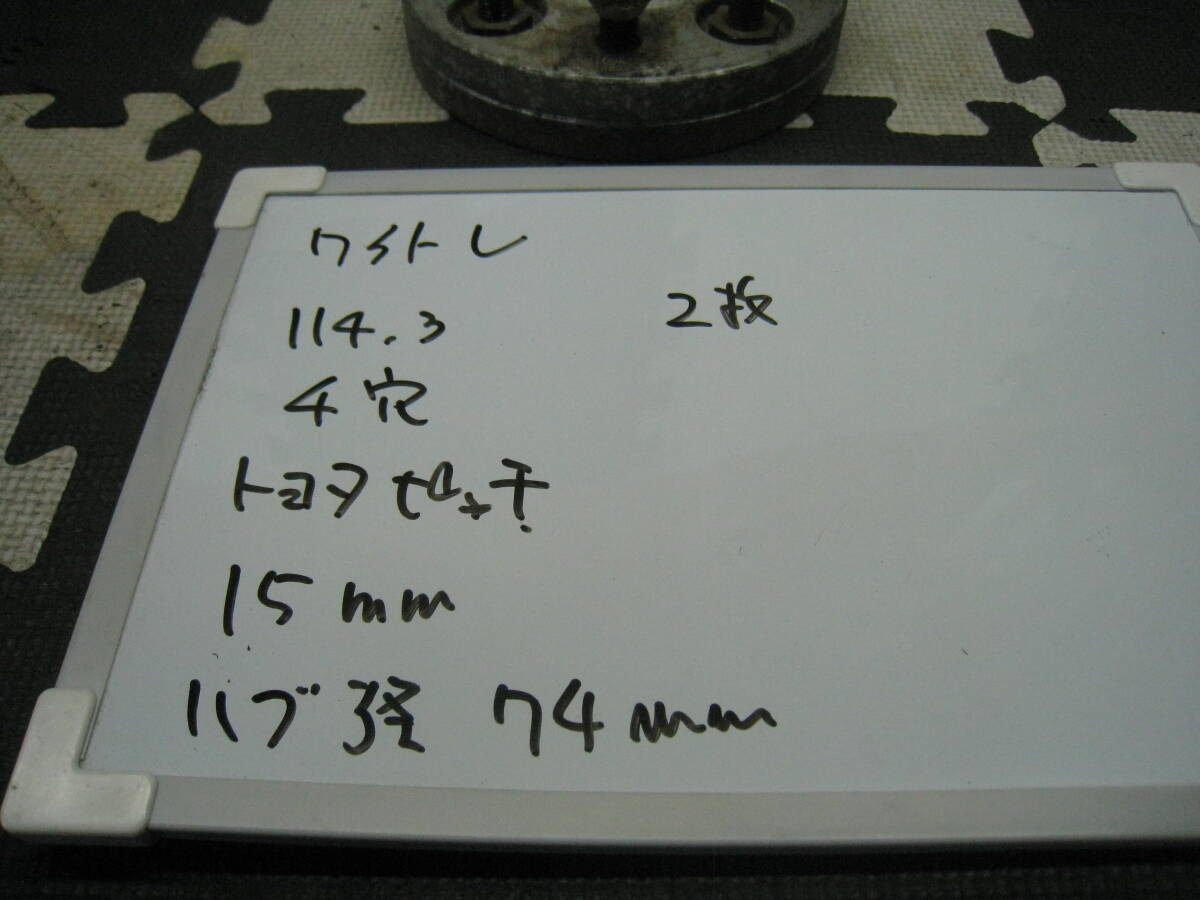 ワイトレ
114.3
2枚
4穴
トヨタピッチ
15mm
ハブ径 74mm